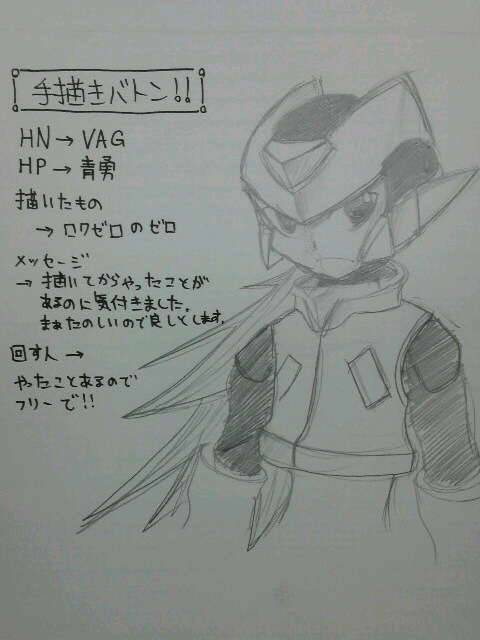 手描きバトン!!
HN→VAG
HP→青勇
描いたもの
→ロクゼロのゼロ
メッセージ
→描いてからやったことが
あるのに気付きました。
まぁたのしいので良しとします。
回す人→
やったことあるので
フリーで!!